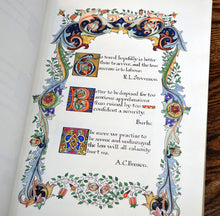 To travel hopefully is better
than to arrive, and the true
success is to labour.
R.L. Stevenson.
Better to be despised for too
anxious apprehensions
than ruined by too
confident a security.
Burke.
The more we practise to
be serene and undismayed
the less will all calamity
hurt us.
A.C. Benson.